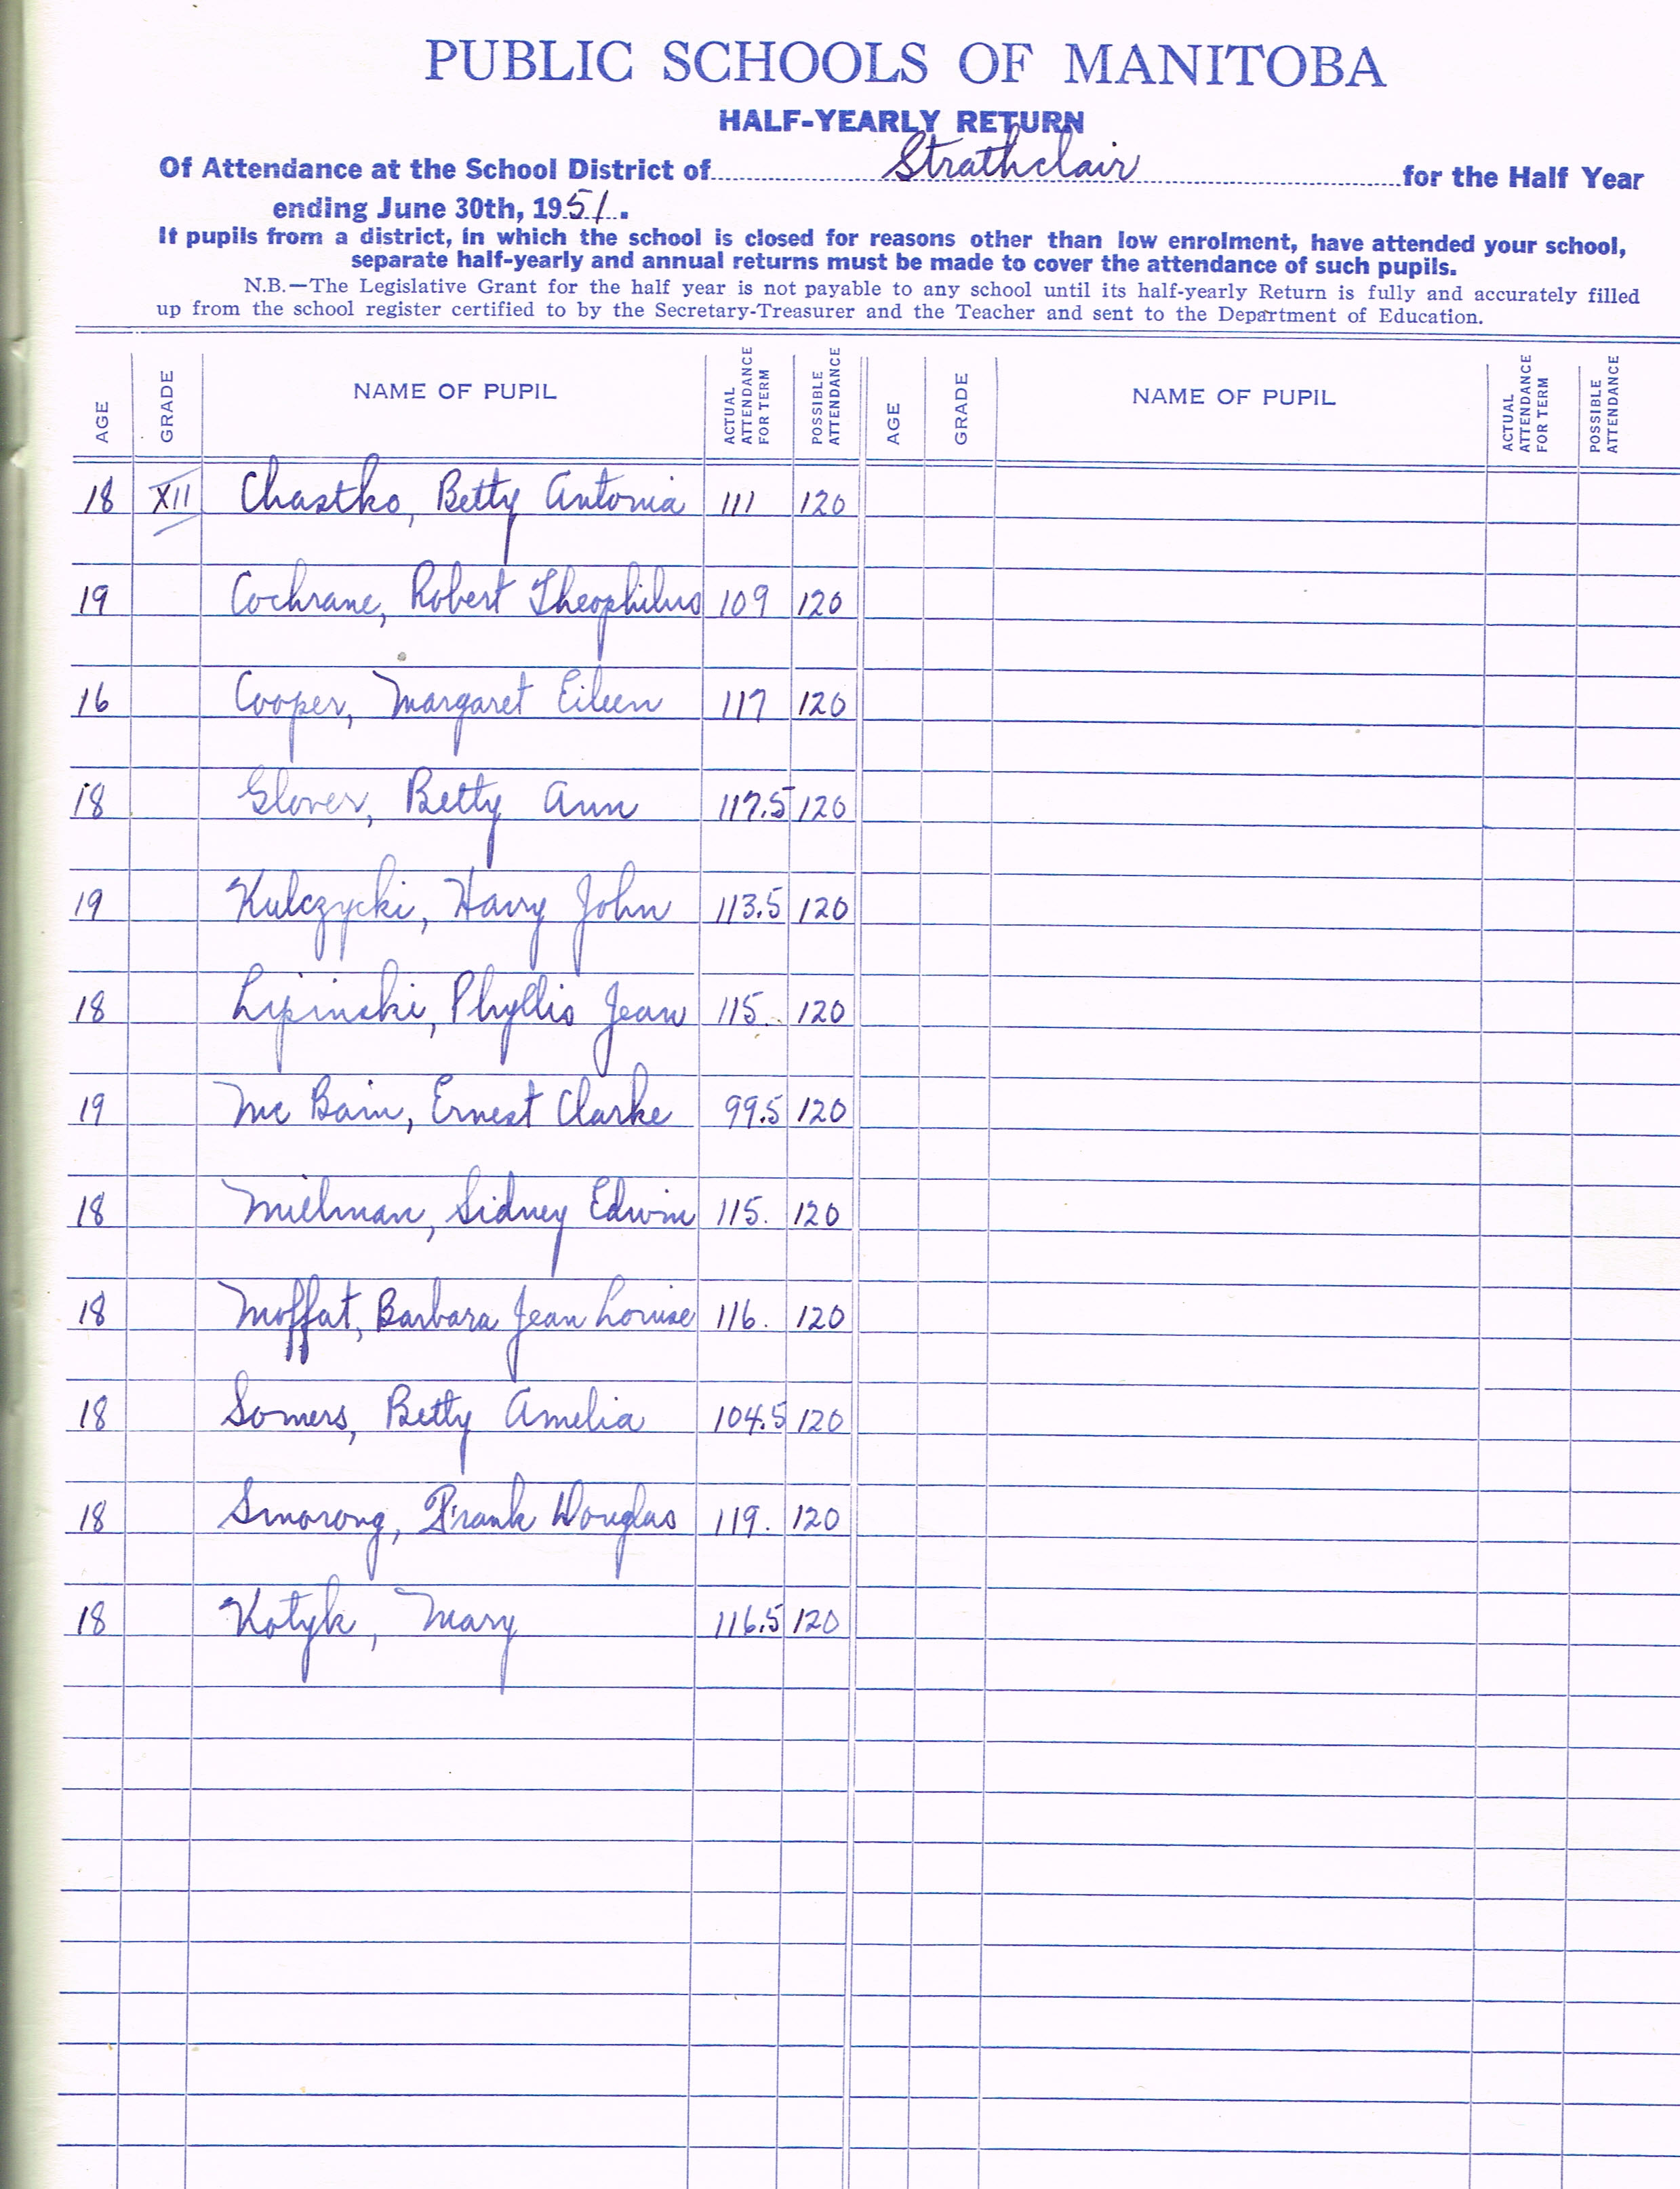 PUBLIC SCHOOLS OF MANITOBA
HALF-YEARLY RETURN
Of Attendance at the School District of Strathclair for the Half Year
ending June 30th, 1951.
If pupils from a district, in which the school is closed for reasons other than low enrolment, have attended your school,
separate half-yearly and annual returns must be made to cover the attendance of such pupils.
N.B.—The Legislative Grant for the half year is not payable to any school until its half-yearly Return is fully and accurately filled
up from the school register certified to by the Secretary-Treasurer and the Teacher and sent to the Department of Education.
AGE GRADE NAME OF PUPIL ACTUAL ATTENDANCE FOR TERM POSSIBLE ATTENDANCE AGE GRADE NAME OF PUPIL ACTUAL ATTENDANCE FOR TERM POSSIBLE ATTENDANCE
18 XII Chastko, Betty Antonia 111 120
19 Cochrane, Robert Theophilus 109 120
16 Cooper, Margaret Eileen 117 120
18 Glover, Betty Ann 117.5 120
19 Kulczycki, Harry John 113.5 120
18 Lipinski, Phyllis Jean 115. 120
19 Mc Bain, Ernest Clarke 99.5 120
18 Millman, Sidney Edwin 115. 120
18 Moffat, Barbara Jean Louise 116. 120
18 Somers, Betty Amelia 104.5 120
18 Smorong, Frank Douglas 119. 120
18 Kotyk, Mary 116.5 120